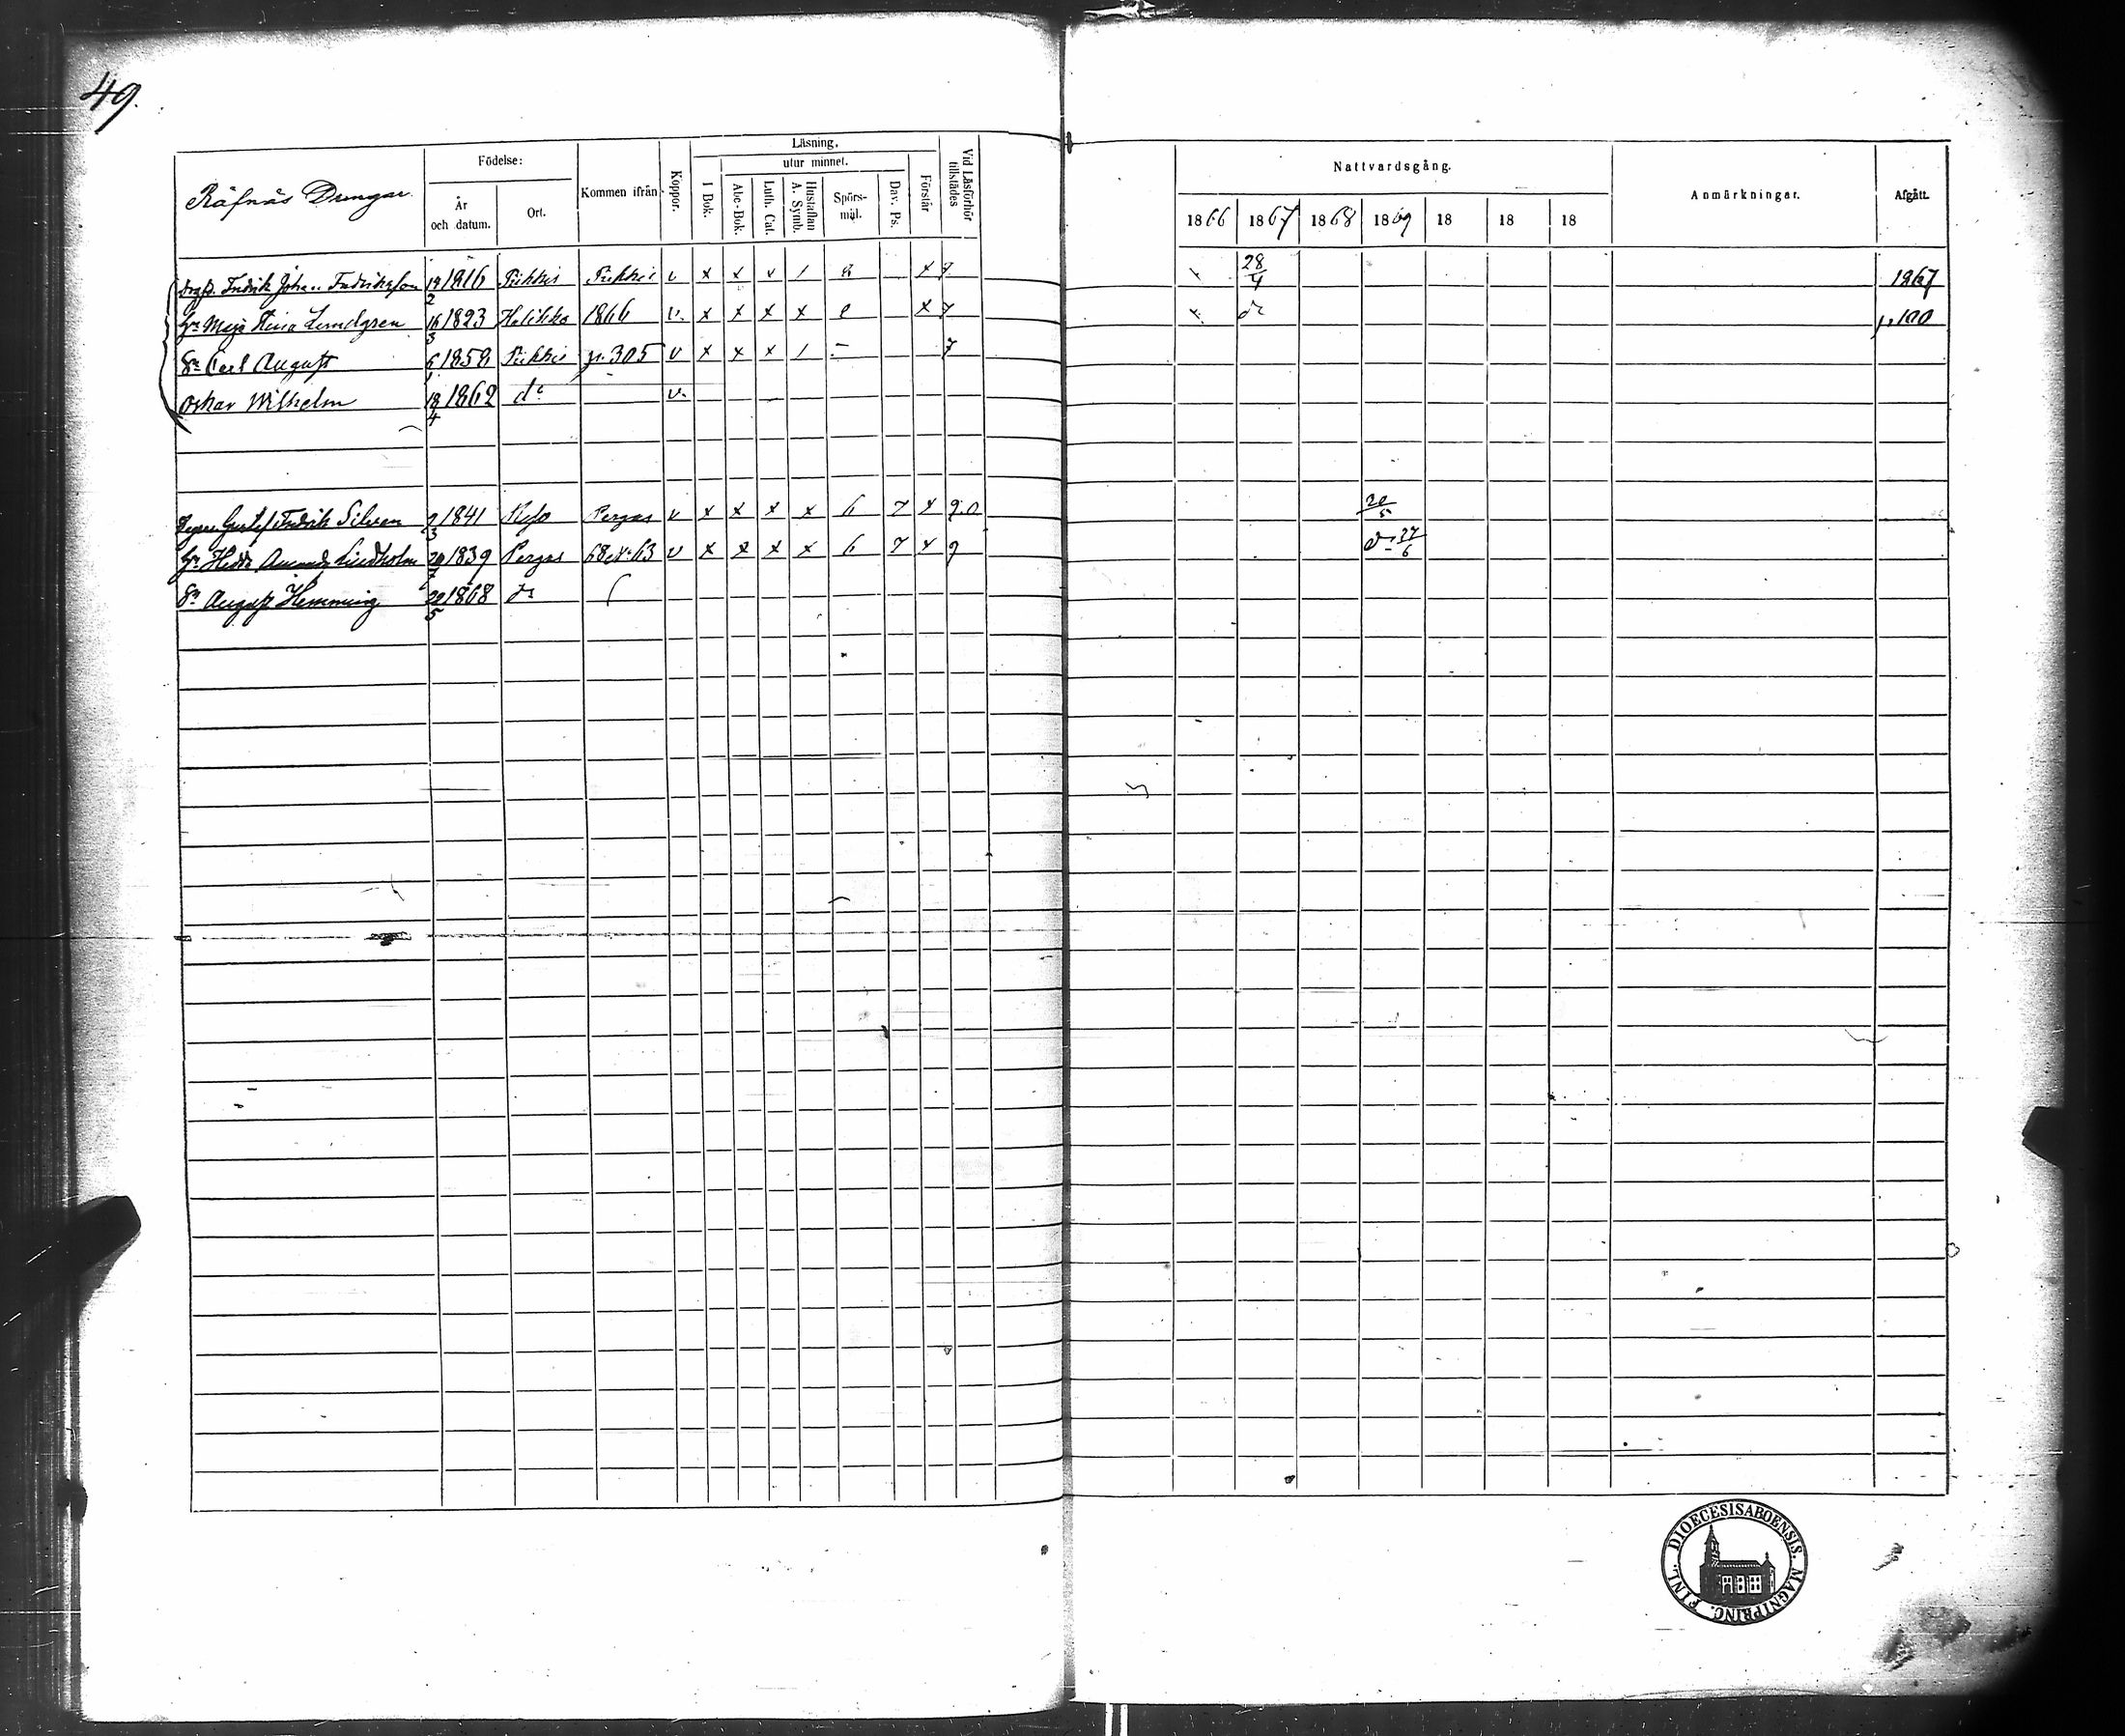 49.
Räfnäs Drengar.
Födelse:
År och datum.
Ort.
Kommen ifrån
Koppor.
Läsning.
utur minnet.
I Bok.
Abc-Bok.
Luth. Cat.
Hustaflan A. Symb.
Spörsmål.
Dav. Ps.
Förstår
Vid Läsförhör tillstädes
Nattvardsgång.
1866 1867 1868 1869 18 18 18
Anmärkningar.
Afgått.
Fredrik Johan Fredriksson 19/2 1816 Piikkis Piikkis v x x v / x 7 x 28/4 1867
Hu Maja Stina Lundgren 16/3 1823 Halikko 1866 v. x x x x 2 x 7 x do p. 100
Sn Carl August 6/1 1858 Piikkis p. 305 v x x x / - 7
Oskar Wilhelm 18/4 1862 do v.
Gustaf Fredrik Silven 9/3 1841 Pargas v x x x x 6 7 x 9.0 20/5
Hu Hedda Amanda Lindholm 20/7 1839 Pargas 68 N:63 v x x x x 6 7 x 9 do 27/6
Sn August Hemming 22/5 1868 do
DIOECESIS ABOENSIS. MAGNI PRINC. FINL.